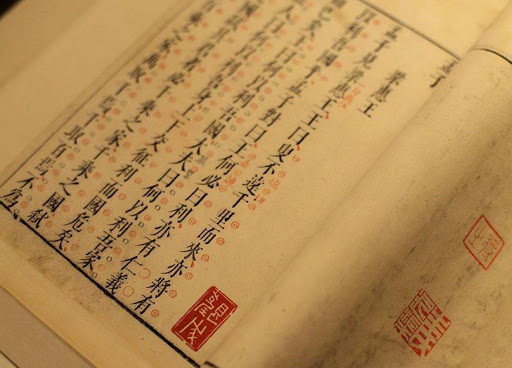 孟子
梁惠王
孟子見梁惠王王曰叟不遠千里而來亦將有
以利吾國乎孟子對曰王何必曰利亦有仁義
而已矣王曰何以利吾國大夫曰何以利吾家
人曰何以利吾身上下交征利而國危矣
國弒其君者必千乘之家千乘之國弒
乘之家萬取千焉千取百焉不為